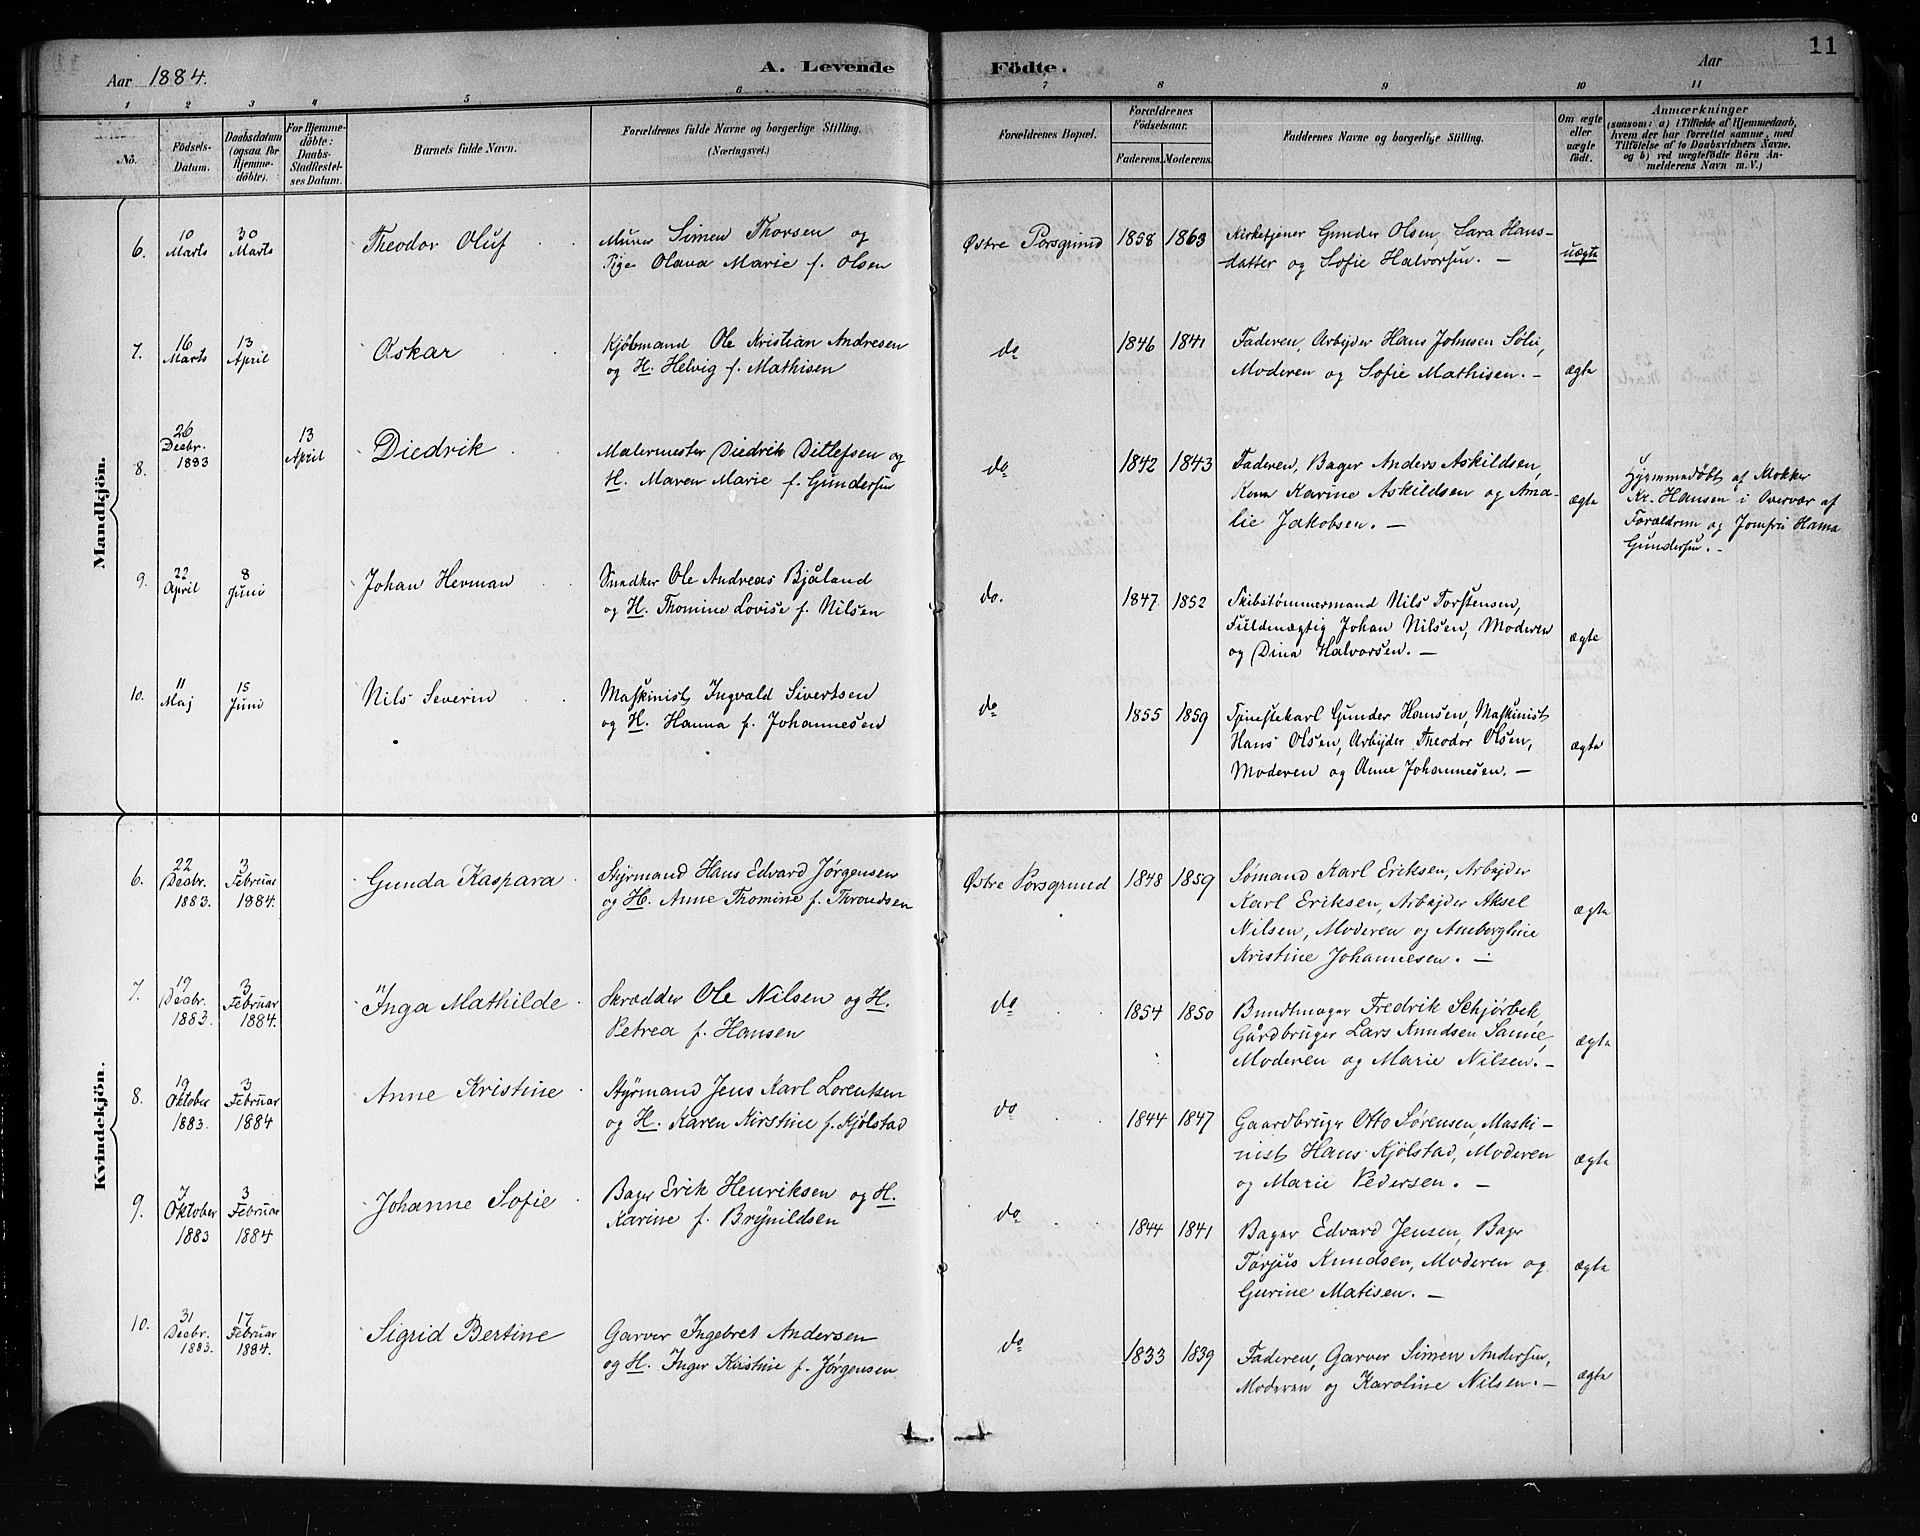 11
Aar 1884.
A. Levende Födte.
Aar
1 2 3 4 5 6 7 8 9 10 11
No.
Födsels-Datum.
Daabsdatum (ogsaa for Hjemme-döbte).
For Hjemme-döbte: Daabs-Stadfæstel-ses Datum.
Barnets fulde Navn.
Forældrenes fulde Navne og borgerlige Stilling. (Næringsvei.)
Forældrenes Bopæl.
Forældrenes Födselsaar.
Faderens. Moderens.
Faddernes Navne og borgerlige Stilling.
Om ægte eller uægte födt.
Anmærkninger
(saasom: a) i Tilfælde af Hjemmedaab,
hvem der har forrettet samme, med
Tilföielse af to Daabsvidners Navne.
og b) ved uægtefödte Börn An-
melderens Navn m. V.)
Mandkjön.
6. 10 Marts 30 Marts Theodor Oluf Murer Simen Thorsen og
Pige Olava Marie f. Olsen
Østre Porsgrund 1858 1863 Kirketjener Gunder Olsen, Sara Hans-
datter og Sofie Halvorsen. — uægte
7. 16 Marts 13 April Oskar Kjøbmand Ole Kristian Andresen
og H. Helvig f. Mathisen
do 1846 1841 Faderen, Arbejder Hans Johnsen Solie,
Moderen og Sofie Mathisen. — ægte
8. 26 Decbr. 1883 13 April Diedrik Malermester Diedrik Ditlefsen og
H. Maren Marie f. Gundersen
do 1842 1843 Faderen, Bager Anders Askildsen,
Kona Karine Askildsen og Ama-
lie Jakobsen. — ægte
Hjemmedøbt af Klokker
Kr. Hansen i Overvær af
Forældrene og Jomfru Hanna
Gundersen. -
9. 22 April 8 Juni Johan Herman Snedker Ole Andreas Bjåland
og H. Thomine Lovise f. Nilsen
do. 1847 1852 Skibstømmermand Nils Torstensen,
Fuldmægtig Johan Nilsen, Moderen
og Dina Halvorsen. — ægte
10. 11 Maj 15 Juni Nils Severin Maskinist Ingvald Sivertsen
og H. Hanna f. Johannesen
do 1855 1859 Tjenestekarl Gunder Hansen, Maskinist
Hans Olsen, Arbejder Theodor Olsen,
Moderen og Anne Johannesen. — ægte
Kvindekjön.
6. 22 Decbr. 1883. 3 Februar 1884. Gunda Kaspara Styrmand Hans Edvard Jørgensen
og H. Anne Thomine f. Throndsen
Østre Porsgrund 1848 1859 Sømand Karl Eriksen, Arbejder
Karl Eriksen, Arbejder Aksel
Nilsen, Moderen og
Kristine Johannesen. — ægte
7. 19 Decbr. 1883. 3 Februar 1884. Inga Mathilde Skrædder Ole Nilsen og H.
Petrea f. Hansen
do 1854 1850 Bundtmager Fredrik Schjørbek,
Gårdbruger Lars Knudsen
Moderen og Marie Nilsen. — ægte
8. 19 Oktober 1883. 3 Februar 1884 Anne Kristine Styrmand Jens Karl Lorentsen
og H. Karen Kirstine f. Kjølstad
do 1844 1847 Gaardbruger Otto Sørensen, Maski-
nist Hans Kjølstad, Moderen
og Marie Pedersen. — ægte
9. 7 Oktober 1883 3 Februar 1884 Johanne Sofie Bager Erik Henriksen og H.
Karine f. Brynildsen
do 1844 1841 Bager Edvard Jensen, Bager
Torjus Knudsen, Moderen og
Gurine Matisen. — ægte
10. 31 Decbr. 1883. 17 Februar 1884. Sigrid Bertine Garver Ingebret Andersen
og H. Inger Kirstine f. Jørgensen
do 1833 1839 Faderen, Garver Simen Andersen,
Moderen og Karoline Nilsen. — ægte